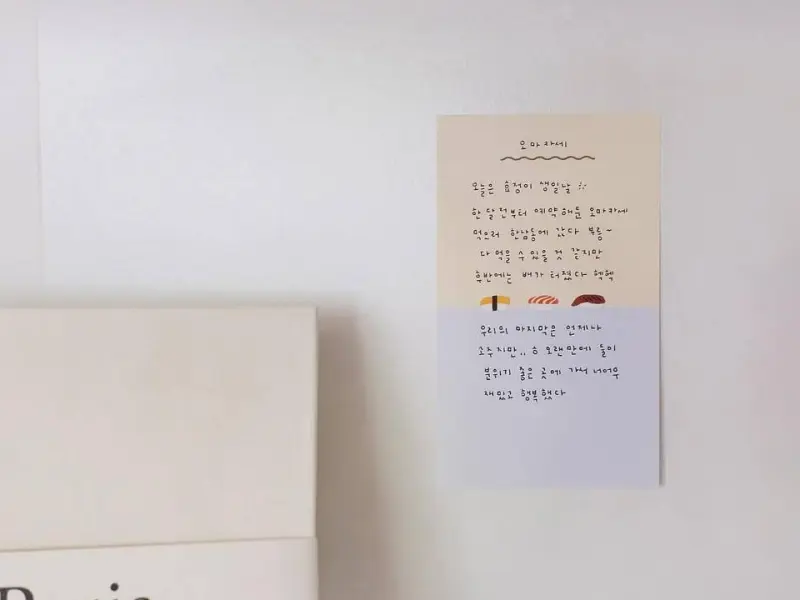 오마카세
오늘은 효정이 생일날
한달전부터 예약해둔 오마카세
먹으러 한남동에 갔다 부릉~
다 먹을 수 있을 것 같지만
후반에는 배가 터졌다 헥헥
우리의 마지막은 언제나
소주지만,, ㅎ 오랜만에 둘이
분위기 좋은 곳에 가서 너어무
재밌고 행복했다